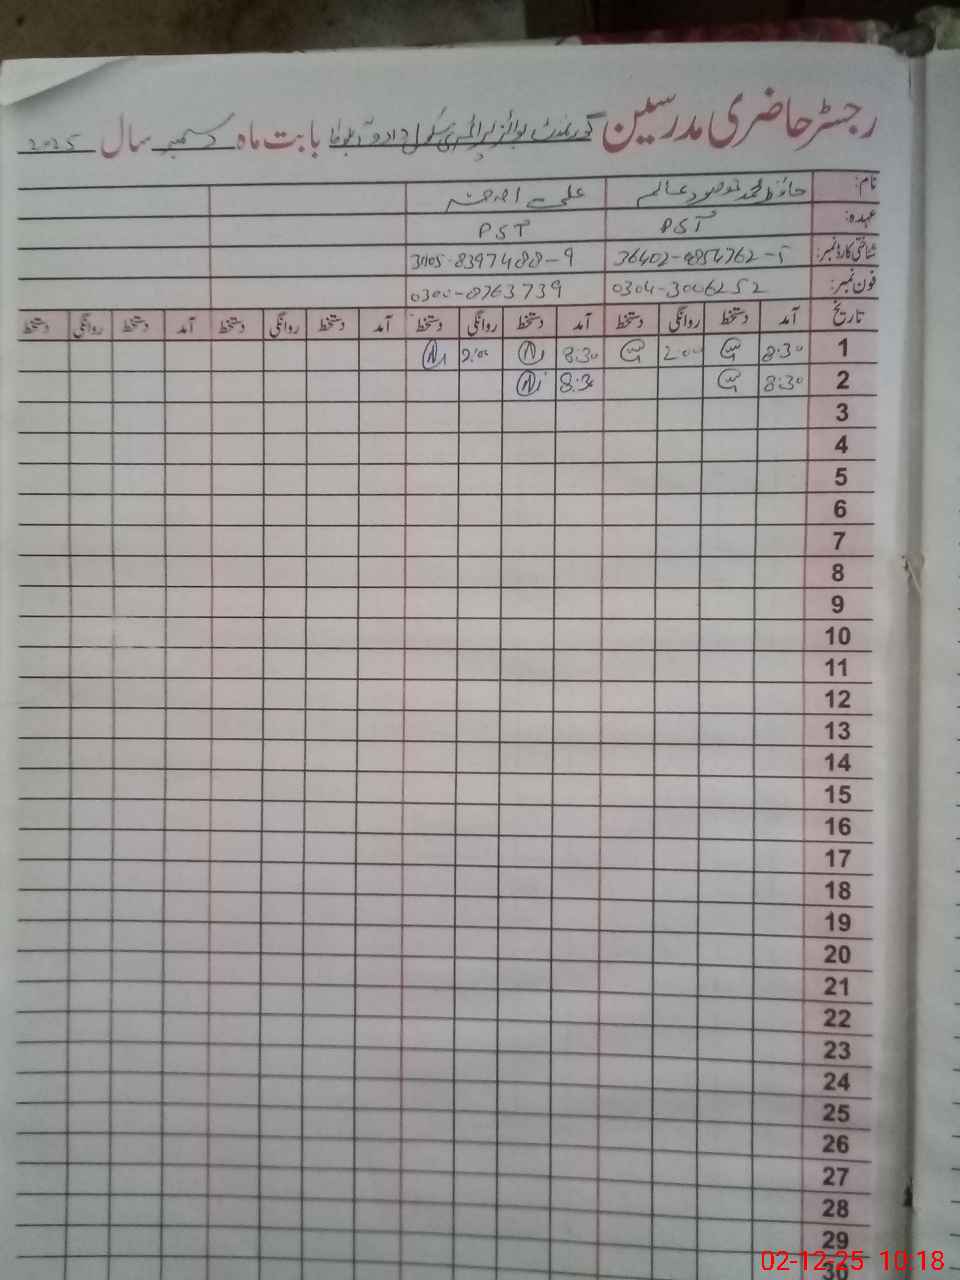 رجسٹر حاضری مدرسین گورنمنٹ بوائز پرائمری سکول بابت ماہ دسمبر سال 2025
نام: حافظ محمد مقصود عالم علی
عہدہ: PST PST
شناختی کارڈ نمبر: 36402-9854762-5 31105-8397488-9
فون نمبر: 0304-3006252 0300-8763739
تاریخ آمد دستخط روانگی دستخط آمد دستخط روانگی دستخط آمد دستخط روانگی دستخط آمد دستخط روانگی دستخط
1 8:30 2:00 8:30 2:00
2 8:30 8:30
3
4
5
6
7
8
9
10
11
12
13
14
15
16
17
18
19
20
21
22
23
24
25
26
27
28
29
30
02-12-25 10:18